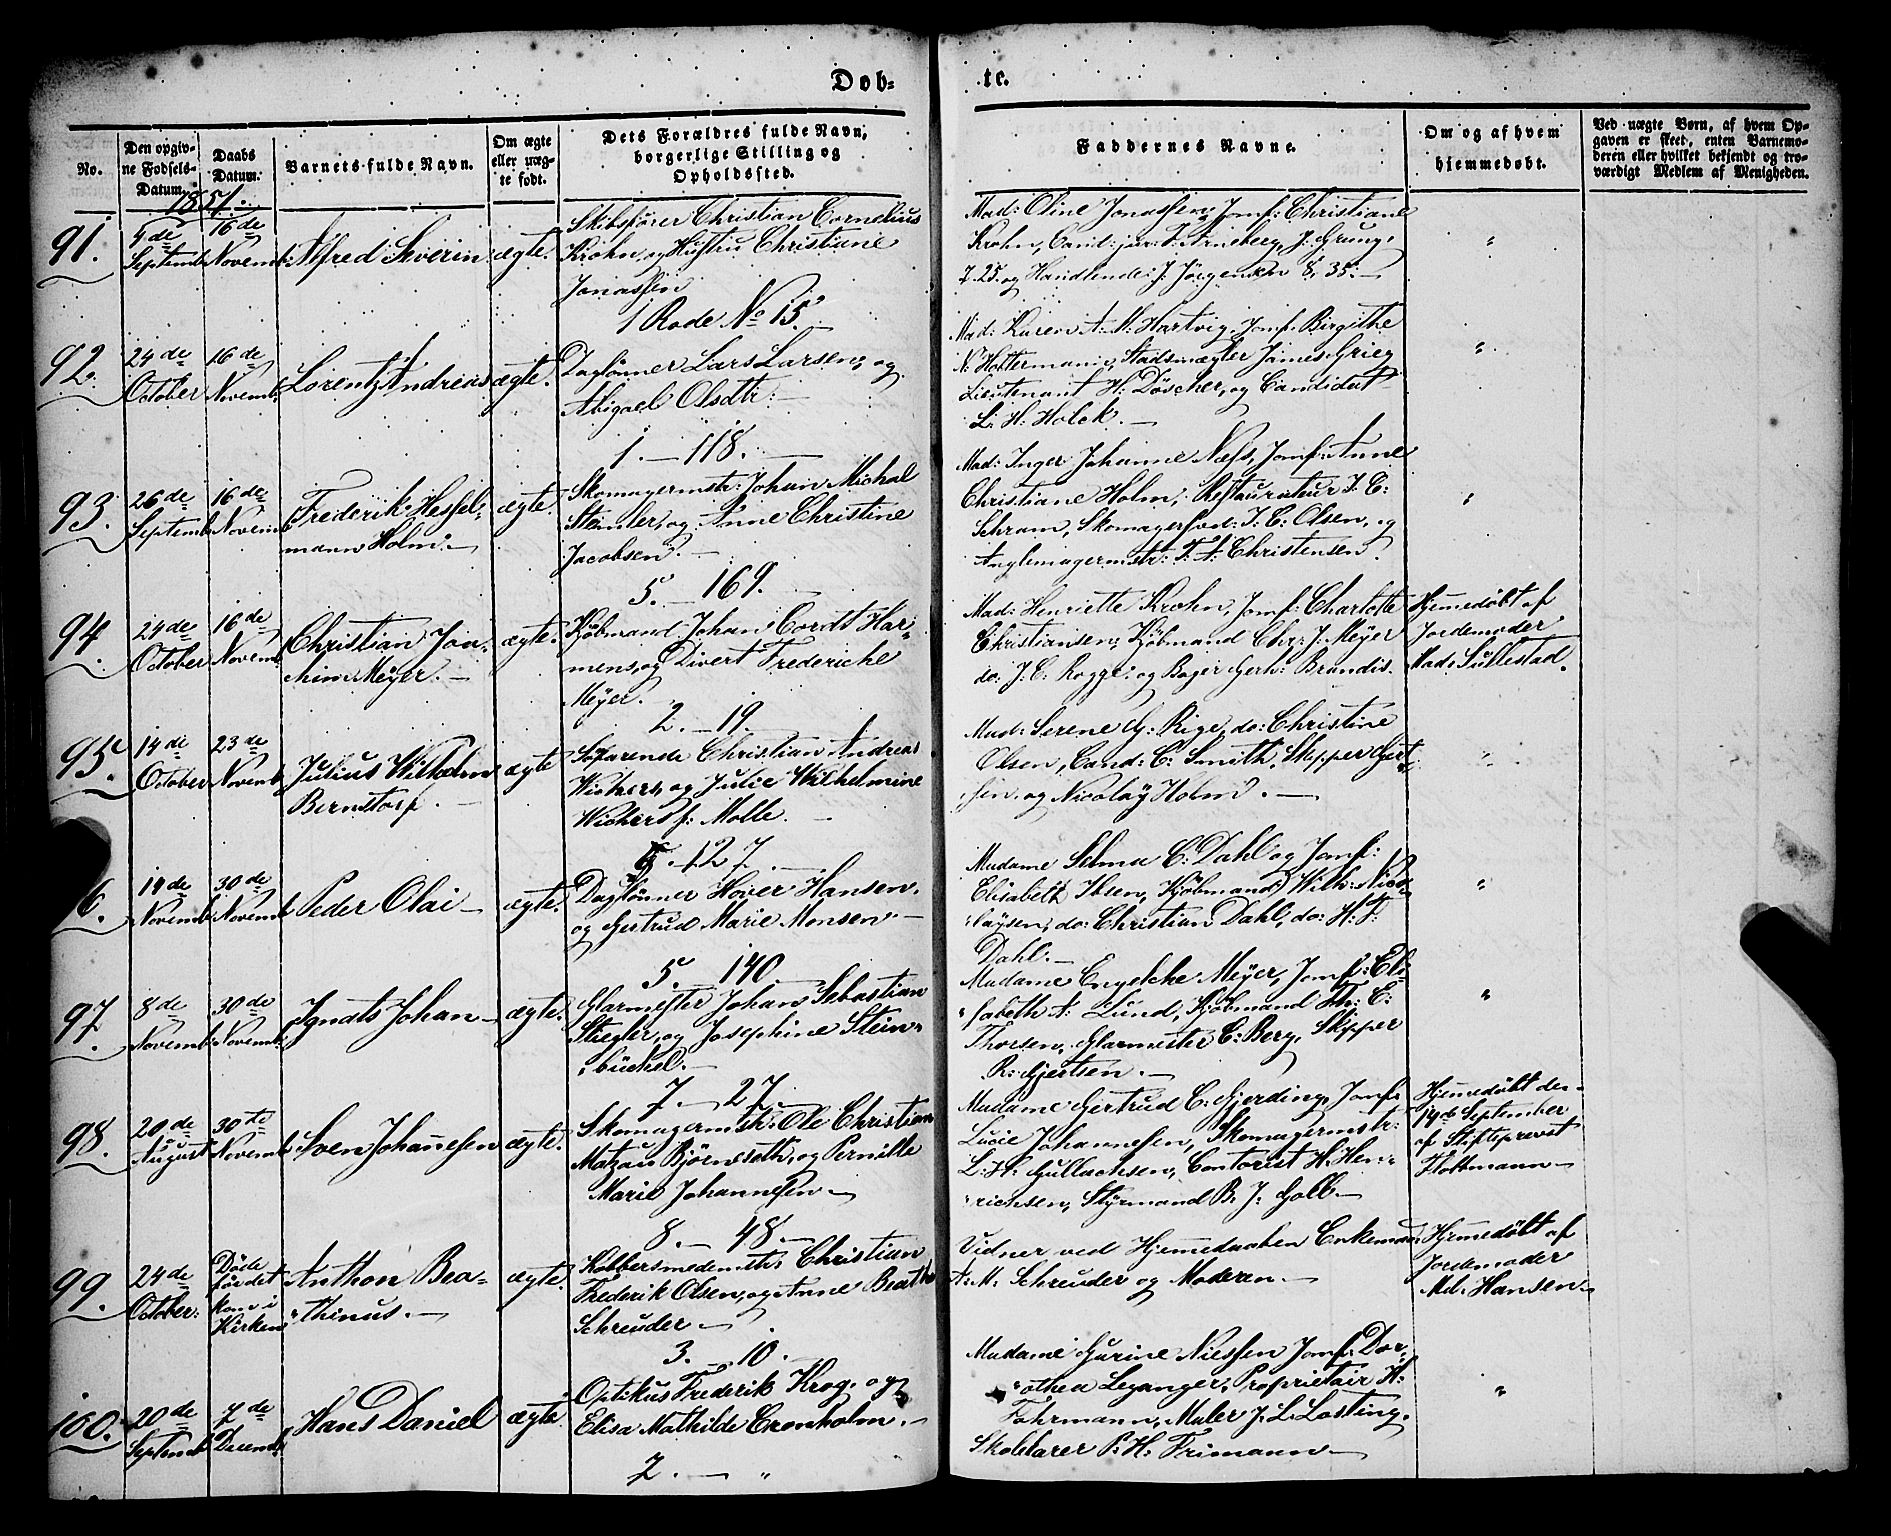 Døb-
te.
No.
Den opgiv-
ne Fødsels-
Datum.
Daabs
Datum.
Barnets fulde Navn.
Om ægte
eller uæg-
te født.
Dets Forældres fulde Navn,
borgerlige Stilling og
Opholdssted.
Faddernes Navne.
Om og af hvem
hjemmedøbt.
Ved uægte Børn, af hvem Op-
gaven er skeet, enten Barnemo-
deren eller hvilket bekjendt og tro-
værdigt Medlem af Menigheden.
1851.
91.
9de
Septemb.
16de
Novemb.
Alfred Severin
ægte.
Skibsfører Christian Cornelius
Krohn, og Hustru Christiane
Jonassen
1 Rode No 15.
Mad: Oline Jonassen, Jomf: Christiane
Krohn, Cand: jur: F. Arneberg, J: Grung,
7.25. og Handlende J: Jörgensen 8, 35.
"
92.
24de
October
16de
Novemb.
Lorentz Andreas
ægte.
Daglönner Lars Larsen, og
Abigael Olsdtr:
1. — 118.
Mad: Karen A: M: Hartvig, Jomf: Birgithe
N: Holtermann, Stadsmægler James Grieg
Lieutenant H: Döscher, og Candidat
L: H: Holck.
"
93.
26de
Septemb.
16de
Novemb.
Frederik Hessel-
mann Holm.
ægte.
Skomagermstr: Johan Michal
Stemler, og Anne Christine
Jacobsen.
5. — 169.
Mad: Inger Johanne Næss, Jomf: Anne
Christiane Holm, Restauratur J. C:
Schram, Skomagersvd: J. C: Olsen, og
Anglemagermstr: T. A: Christensen.
"
94.
24de
October
16de
Novemb.
Christian Joa-
chim Meÿer.
ægte.
Kjöbmand Johan Cordt Har-
mens, og Divert Frederiche
Meÿer.
2. — 19.
Mad: Henriette Krohn, Jomf: Charlotte
Christiansen, Kjöbmand Chr: J: Meÿer
do: J. C: Rogge, og Bager Gerh: Brandis.
Hjemedöbt af
Jordemoder
Mad: Sullestad.
95.
14de
October
23de
Novemb.
Julius Wilhelm
Bernstorf.
ægte
Söfarende Christian Andreas
Wichers, og Julie Wilhelmine
Wichers f: Molle.
5. — 127.
Mad: Serene G: Rige, do: Christine
Olsen, Cand: C: Smith, Skipper Gjert
sen, og Nicolaÿ Holm.
"
6.
14de
Novemb.
30de
Novemb.
Peder Olai
ægte.
Daglönner Hover Hansen,
og Gertrud Marie Monsen
5. — 140.
Madame Selma C: Dahl og Jomf:
Elisabeth Ibsen, Kjöbmand Wilh: Nico-
laÿsen, do: Christian Dahl, do: H: F:
Dahl.
"
97.
8de
Novemb.
30de
Novemb.
Ignats Johan
ægte.
Glarmester Johan Sebastian
Stiegler, og Josephine Stein-
büchel.
7. — 27.
Madame Engelche Meÿer, Jomf: Eli-
sabeth A: Lund, Kjöbmand Th: C:
Thorsen, Glarmester C: Berg, Skipper
R: Gjertsen.
"
98.
20de
August
30te
Novemb.
Sven Johannesen
ægte.
Skomagermstr: Ole Christian
Matzau Björnseth, og Pernille
Marie Johannesen
8. — 48.
Madame Gertrud C: Gjerding, Jomf:
Lucie Johannesen, Skomagermstr:
L: A: Gullachsen, Contorist H: Hen-
richsen, Styrmand B. J. Golb
Hjemedöbt den
14de September
af Stiftsprovst
Flottmann
99.
24de
October.
Döde
för det
kom i
Kirken
Anthon Bea-
thinus.
ægte.
Kobbersmedmstr: Christian
Frederik Olsen, og Anne Beathe
Schreuder
3. — 10.
Vidner ved Hjemedaaben Enkemad:
A: M: Schreuder og Moderen.
Hjemedöbt af
Jordemoder
Md: Hansen
100.
20de
Septemb.
7de
Decemb.
Hans Daniel
ægte.
Optikus Frederik Krog, og
Elisa Mathilde Cronholm.
2. — "
Madame Gurine Nielsen Jomf: Dor-
othea Leganger, Proprietair H:
Fohrmann, Maler J. L: Losting,
Skolelærer P: H: Frimann
"